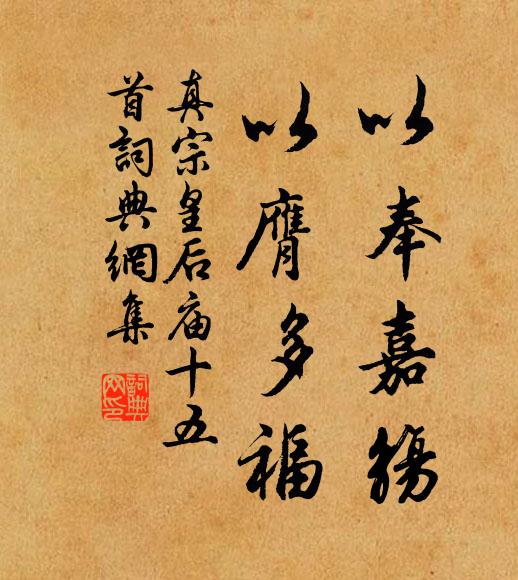 以奉嘉觴
以膺多福
真宗皇后庙十五
首詞典網集
詞典
网印